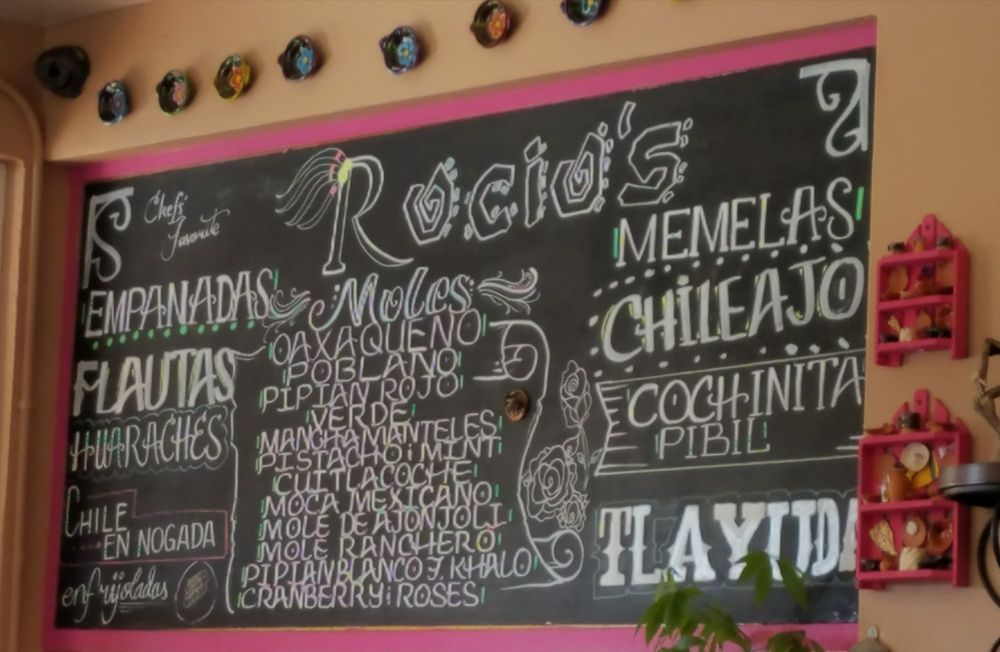 Rocio's
Chefs
Favorite
EMPANADAS
FLAUTAS
HUARACHES
CHILE
EN NOGADA
enfrijoladas
Moles
OAXAQUENO
POBLANO
PIPIAN ROJO
VERDE
MANCHAMANTELES
PISTACHO: MINT
CUITLACOCHE
MOCA MEXICANO
MOLE DE AJONJOLI
MOLE RANCHERO
PIPIAN BLANCO Y KHALO
CRANBERRY: ROSES
MEMELAS
CHILEAJO
COCHINITA
PIBIL
TLAYUDA